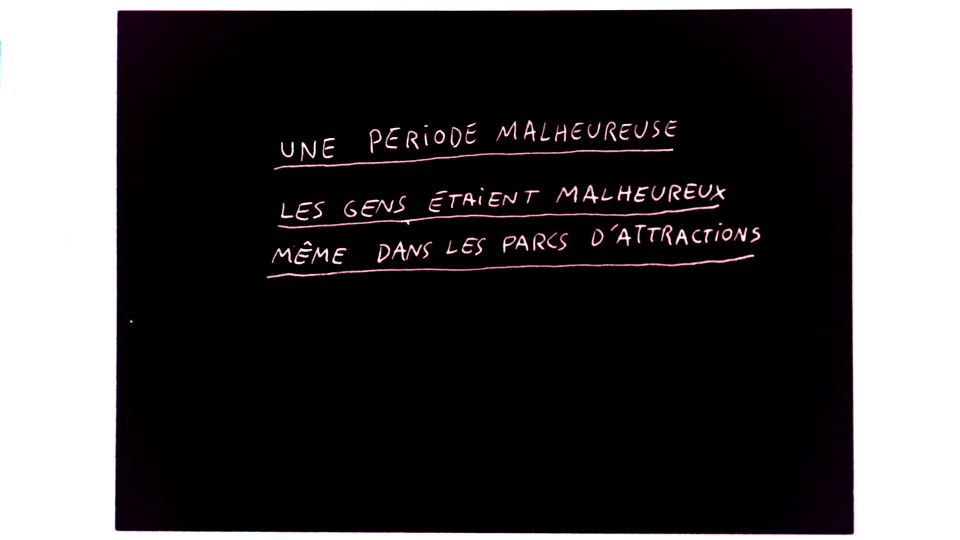 UNE PERIODE MALHEUREUSE
LES GENS ÉTAIENT MALHEUREUX
MÊME DANS LES PARCS D'ATTRACTIONS